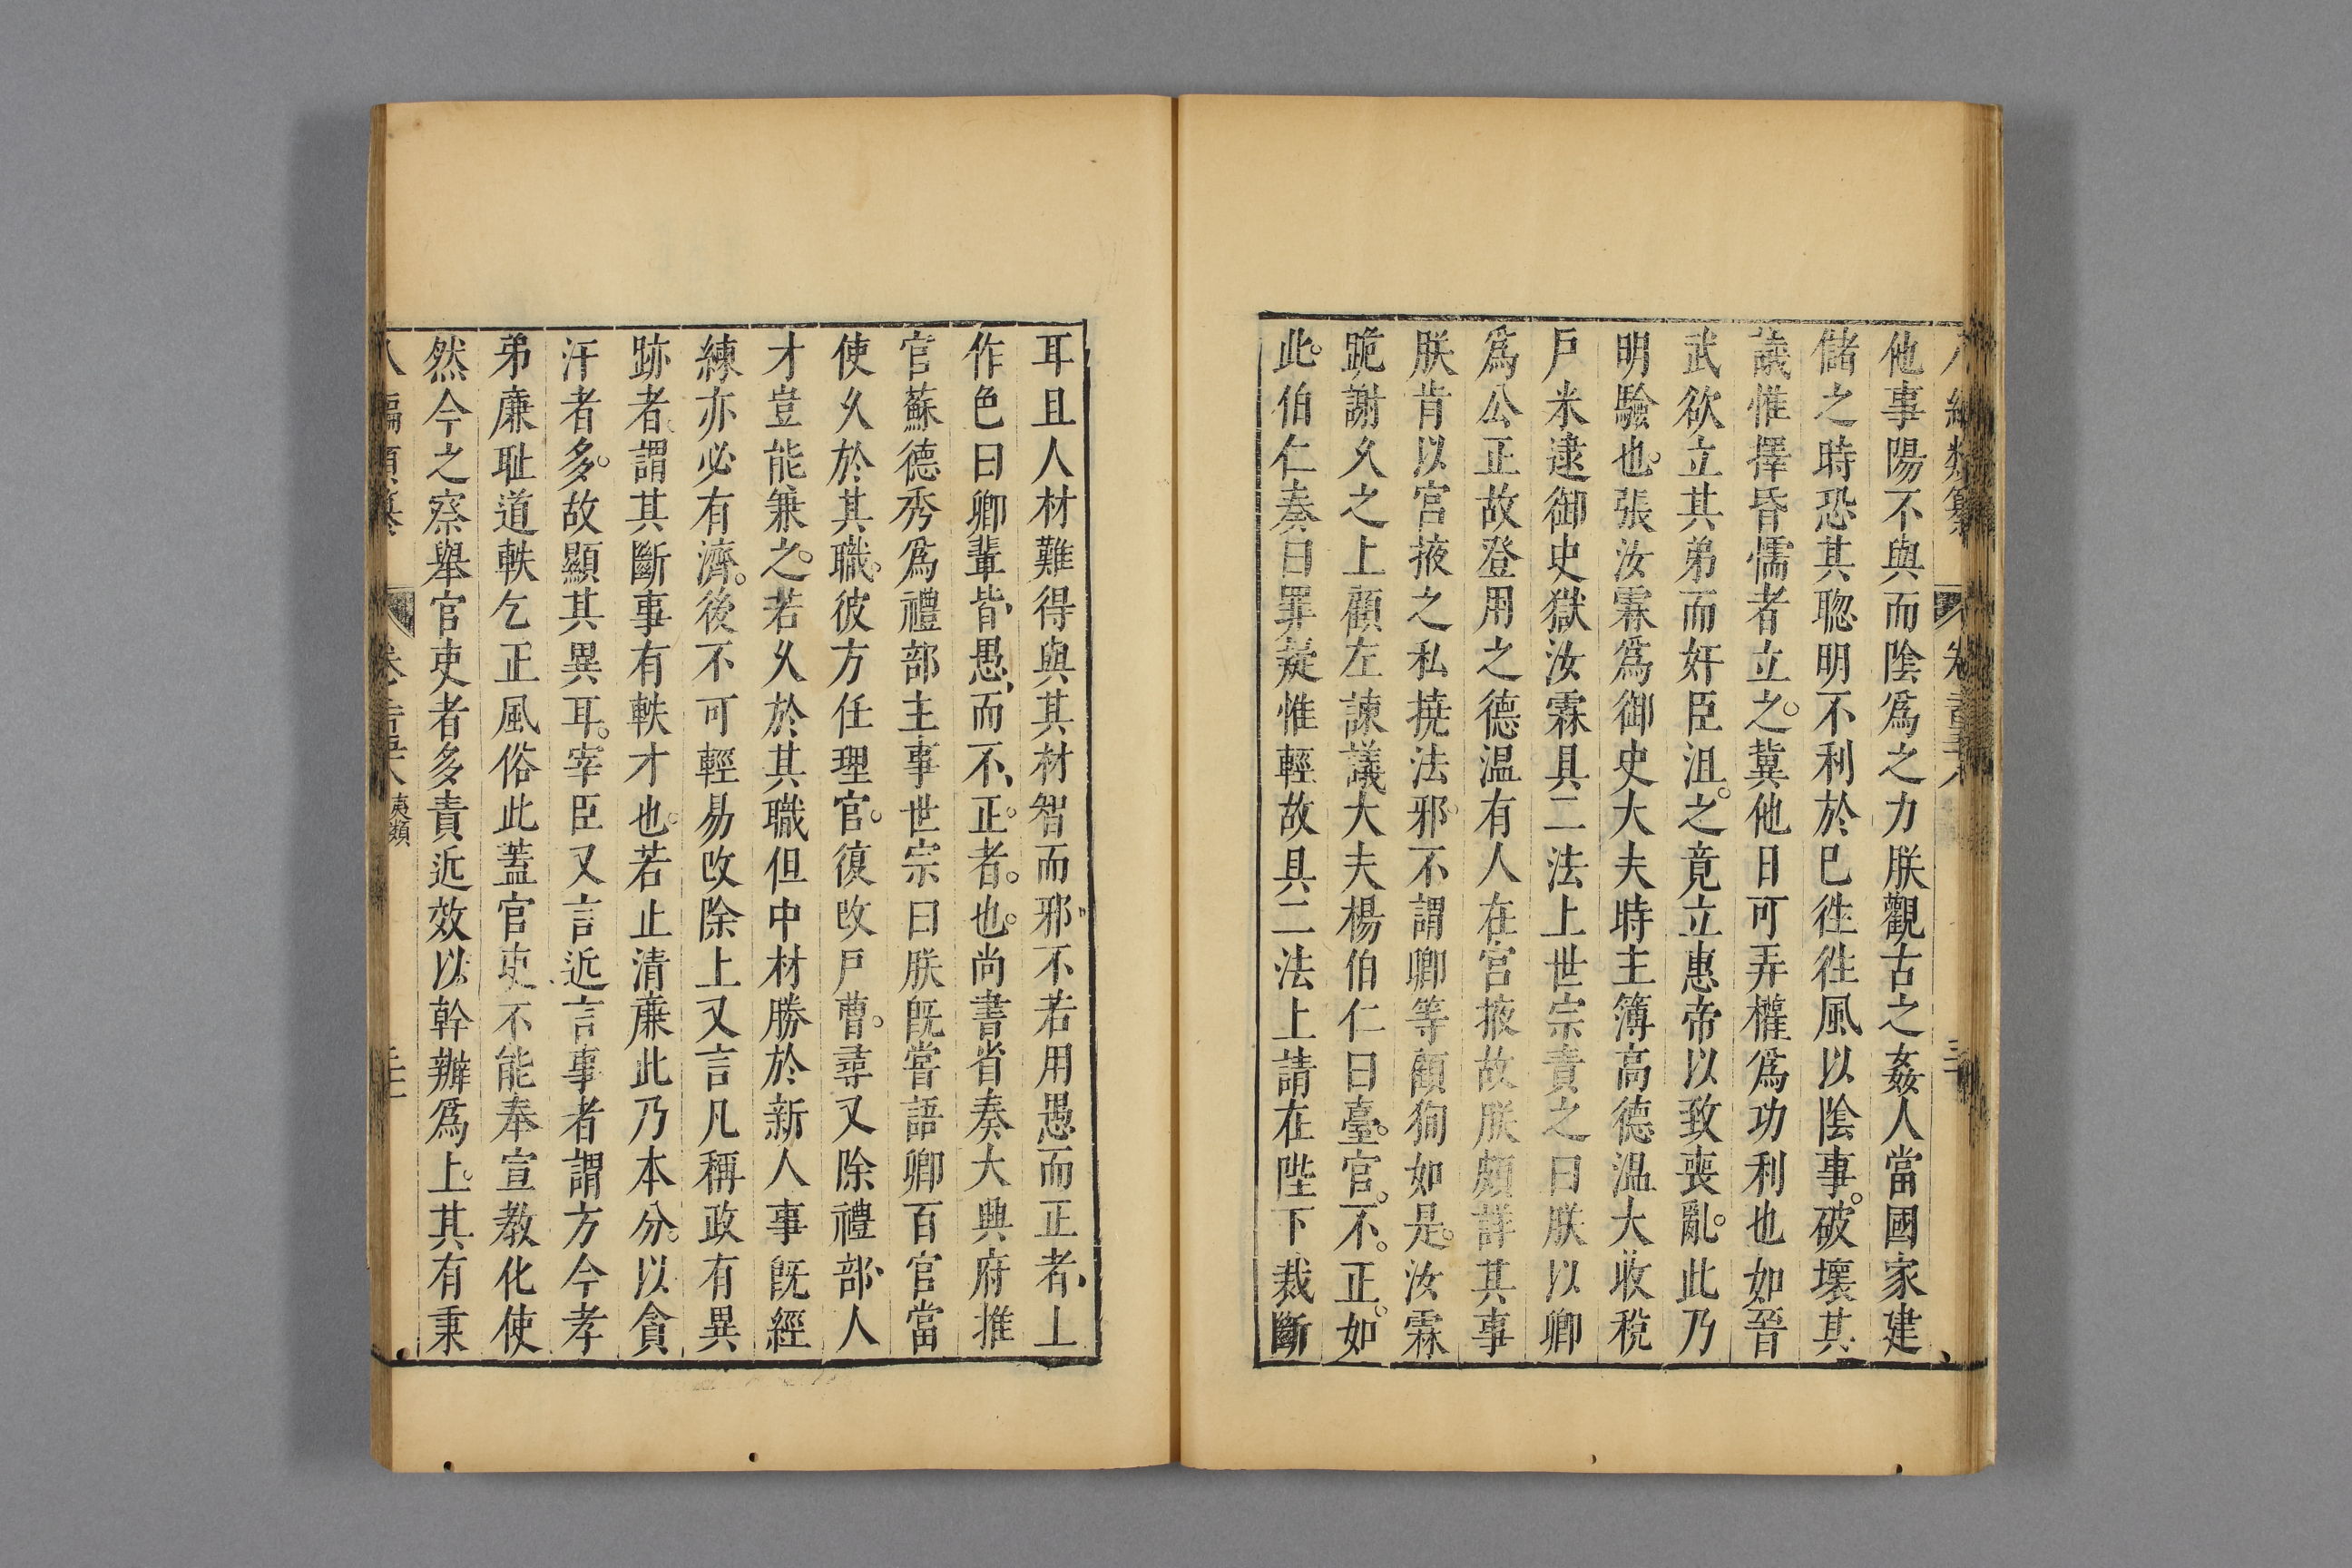 他事陽不與而陰爲之力朕觀古之姦人當國家建
儲之時恐其聦明不利於巳徃徃風以陰事。破壞其
議惟擇昏懦者立之。冀他日可弄權爲功利也如晉
武欲立其弟而奸臣沮。之竟立惠帝以致喪亂。此乃
明驗也。張汝霖爲御史大夫時主簿高德温大收稅
戶米逮御史獄汝霖具二法上世宗責之曰朕以卿
爲公正故登用之德温有人在宮掖故朕頗詳其事
朕肯以宮掖之私撓法邪。不謂卿等顧狥如是。汝霖
跪謝久之上顧左諫議大夫楊伯仁曰臺。官。不。正。如
此。伯仁奏曰罪疑惟輕故具二法上請在陛下裁斷
耳且人材難得與其材智而邪、不若用愚而正者、上
作色曰卿輩皆、愚、而不、正。者。也。尚書省奏大興府推
官蘇德秀爲禮部主事世宗曰朕旣嘗語卿百官當
使久於其職。彼方任理官。復改戶曹。尋又除禮部、人
才豈能兼之。若久於其職但中材勝於新人事旣經
練亦必有濟。後不可輕易改除上又言凡稱政有異
跡者。謂其斷事有軼才也。若止清廉此乃本分。以貪
汙者多。故顯其異耳。宰臣又言近言事者謂方今孝
弟廉耻道軼乞正風俗此蓋官吏不能奉宣教化使
然今之察舉官吏者多責近效以幹辦爲上。其有秉
八編類纂 卷 夷類